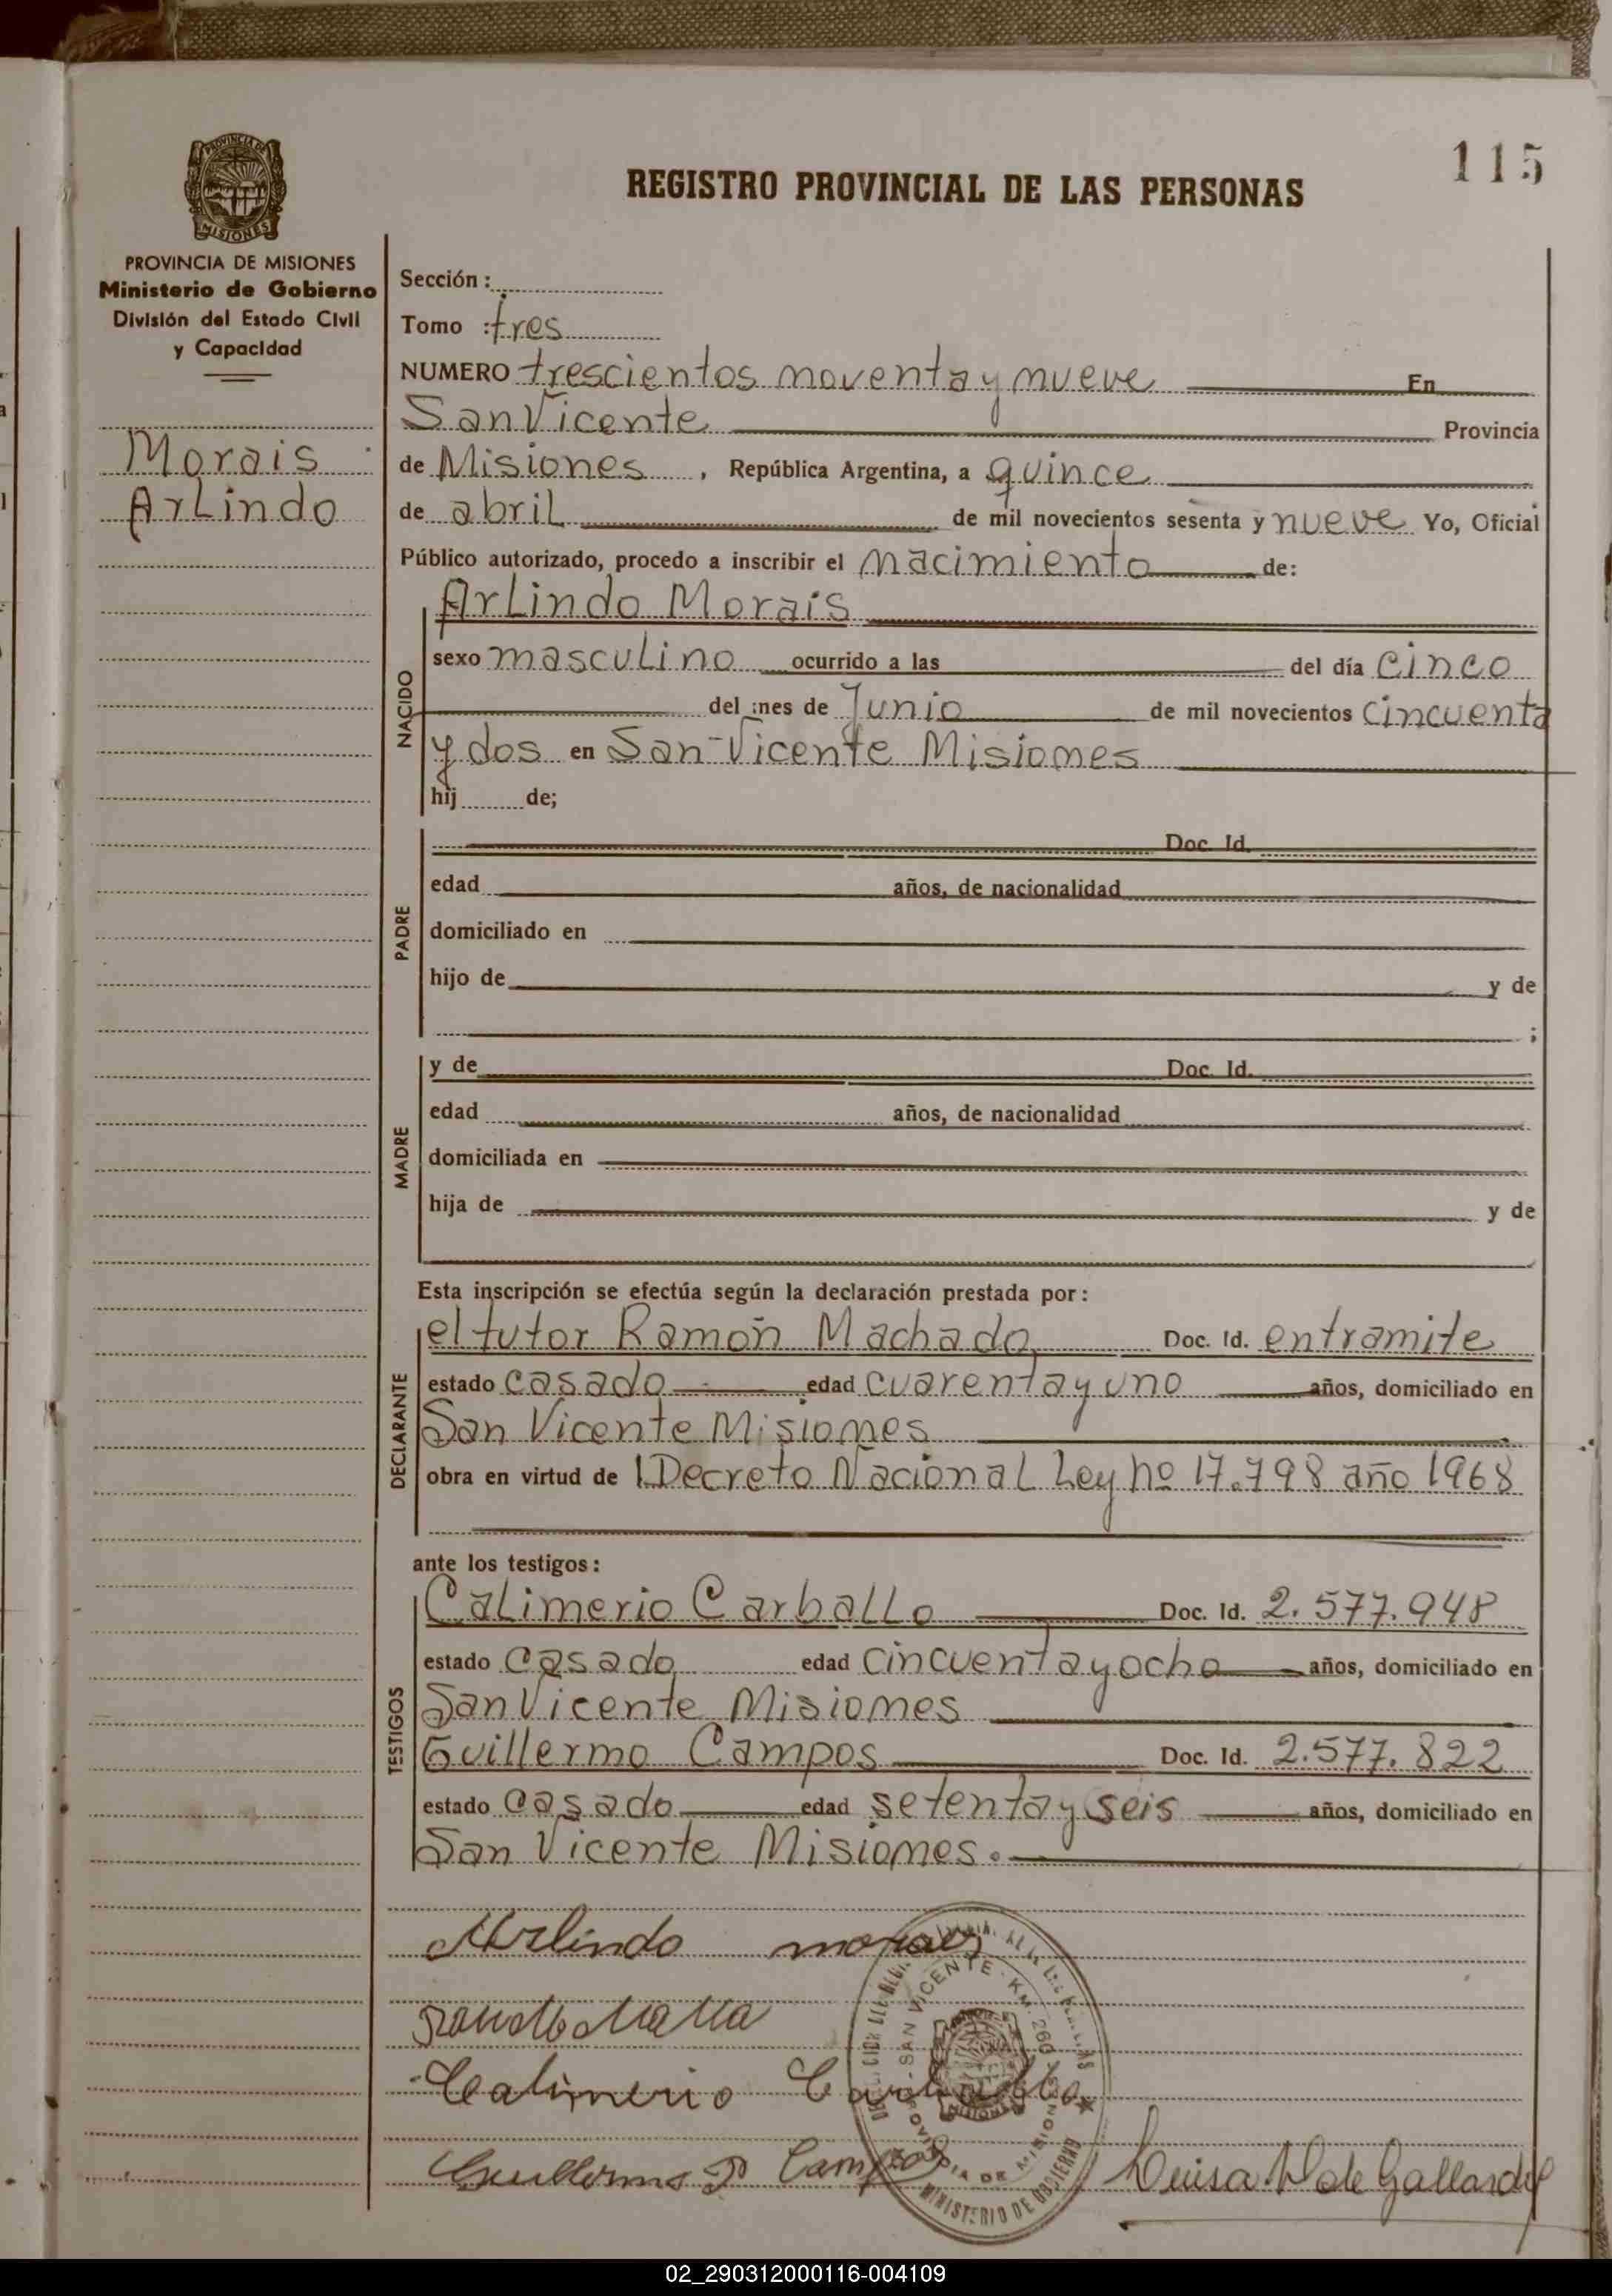 115
REGISTRO PROVINCIAL DE LAS PERSONAS
PROVINCIA DE
MISIONES
PROVINCIA DE MISIONES
Ministerio de Gobierno
División del Estado Civil
y Capacidad
Morais
Arlindo
Sección :
Tomo : tres
NUMERO trescientos noventa y nueve En
San Vicente Provincia
de Misiones , República Argentina, a quince
de abril de mil novecientos sesenta y nueve Yo, Oficial
Público autorizado, procedo a inscribir el nacimiento de:
NACIDO
Arlindo Morais
sexo masculino ocurrido a las del día cinco
del mes de Junio de mil novecientos cincuenta
y dos en San Vicente Misiones
hij de;
PADRE
Doc. Id.
edad años, de nacionalidad
domiciliado en
hijo de y de
;
MADRE
y de Doc. Id.
edad años, de nacionalidad
domiciliada en
hija de y de
Esta inscripción se efectúa según la declaración prestada por :
DECLARANTE
el tutor Ramón Machado Doc. Id. entramite
estado casado edad cuarenta y uno años, domiciliado en
San Vicente Misiones
obra en virtud de l Decreto Nacional Ley nº 17.798 año 1968
ante los testigos :
TESTIGOS
Calimerio Carballo Doc. Id. 2.577.948
estado casado edad cincuenta y ocho años, domiciliado en
San Vicente Misiones
Guillermo Campos Doc. Id. 2.577.822
estado casado edad setenta y seis años, domiciliado en
San Vicente Misiones.
Arlindo morais
Calimerio Carballo
Guillermo Campos
SAN VICENTE - KM. 260
PROVINCIA DE MISIONES
MINISTERIO DE GOBIERNO
Luisa de Gallardo
02_290312000116-004109